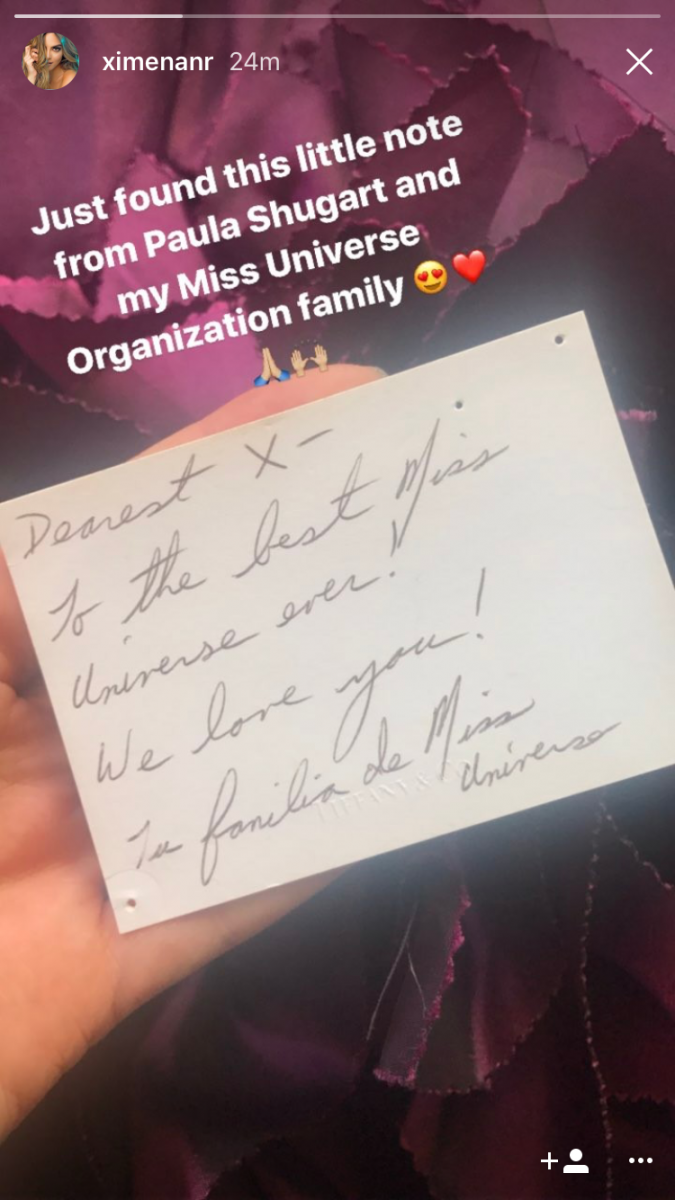 ximenanr 24m
Just found this little note
from Paula Shugart and
my Miss Universe
Organization family 😍❤️
🙏🏼🙌🏼
Dearest X-
To the best Miss
Universe ever!
We love you!
Tu familia de Miss
Universe
TIFFANY & CO.